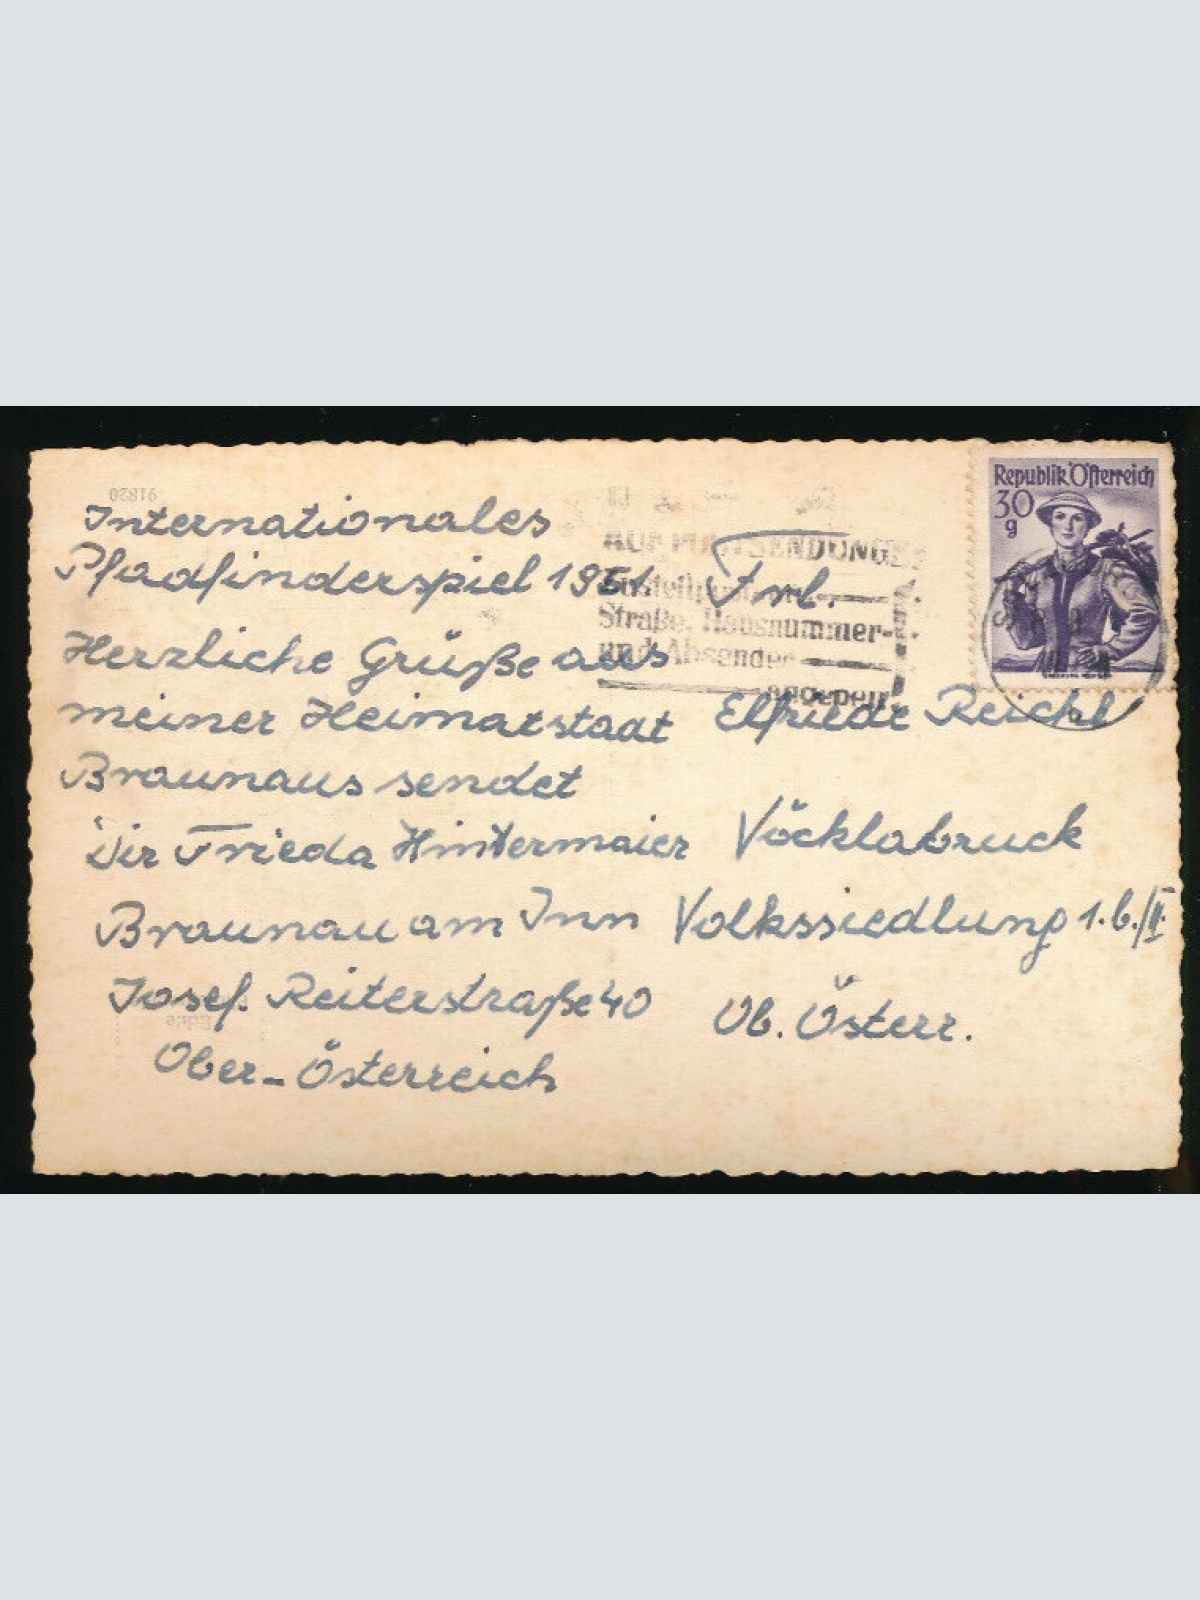 91820
Internationales
Pfadfinderspiel 1951.
Herzliche Grüße aus
meiner Heimatstaat
Braunaus sendet
Dir Frieda Hintermaier
Braunau am Inn
Josef. Reiterstraße 40
Ober-Österreich
Echte
AUF POSTSENDUNGEN
Straße, Hausnummer-
und Absender
angeben
Republik Österreich
30
g
Frl.
Elfriede Reichl
Vöcklabruck
Volkssiedlung 1.b./II.
Ob. Österr.